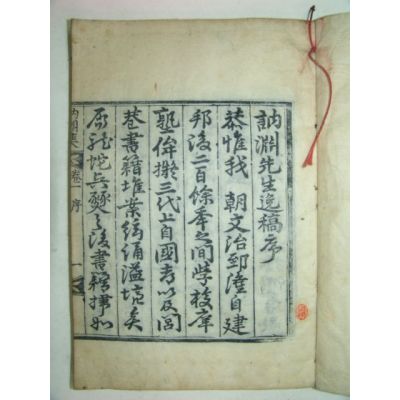 訥淵先生逸稿序
恭惟我 朝文治郅隆自建
邦後二百餘年之間學校庠
塾侔擬三代上自國都以及閭
巷書籍堆業絃誦溢境矣
龍蛇兵燹之後書籍掃如
卷一 序 一